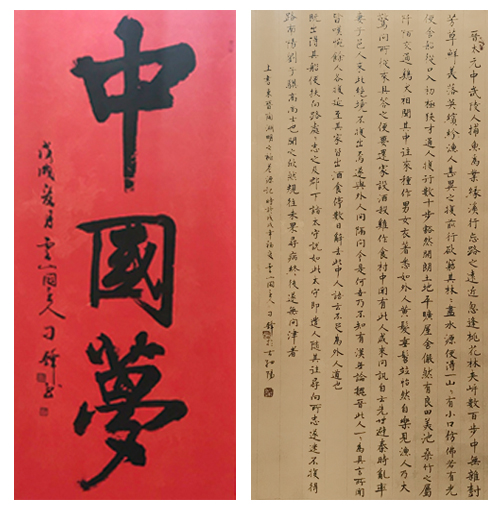 中國夢
戊戌夏月雲间主人刁鋒书
晉太元中武陵人捕魚為業緣溪行忘路之遠近忽逢桃花林夾岸數百步中無雜樹
芳草鮮美落英繽紛漁人甚異之復前行欲窮其林林盡水源便得一山山有小口彷彿若有光
便舍船從口入初極狹才通人復行數十步豁然開朗土地平曠屋舍儼然有良田美池桑竹之屬
阡陌交通雞犬相聞其中往來種作男女衣著悉如外人黃髮垂髫並怡然自樂見漁人乃大
驚問所從來具答之便要還家設酒殺雞作食村中聞有此人咸來問訊自云先世避秦時亂率
妻子邑人來此絕境不復出焉遂與外人間隔問今是何世乃不知有漢無論魏晉此人一一為具言所聞
皆嘆惋餘人各復延至其家皆出酒食停數日辭去此中人語云不足為外人道也
既出得其船便扶向路處處志之及郡下詣太守說如此太守即遣人隨其往尋向所志遂迷不復得
路南陽劉子驥高尚士也聞之欣然規往未果尋病終後遂無問津者
上書東晉陶淵明之桃花源記時於戊戌年初夏雲间主人刁鋒於古